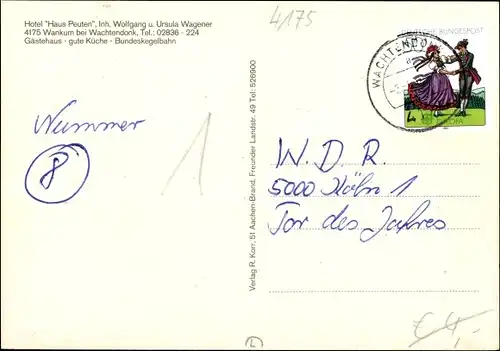 4175
Hotel "Haus Peuten", Inh. Wolfgang u. Ursula Wagener
4175 Wankum bei Wachtendonk, Tel.: 02836 - 224
Gästehaus · gute Küche · Bundeskegelbahn
DEUTSCHE BUNDESPOST
WACHTENDONK
EUROPA
Nummer
8
1
Verlag R. Korr, 51 Aachen-Brand, Freunder Landstr. 49 Tel: 526900
W. D. R.
5000 Köln 1
Tor des Jahres
L
€ 4,-